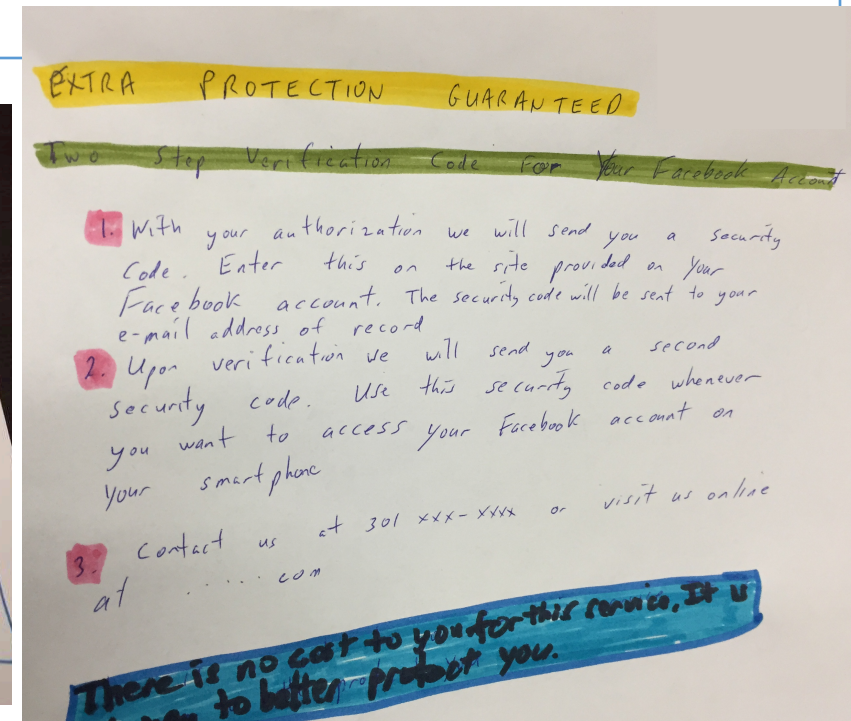 EXTRA PROTECTION GUARANTEED
Two Step Verification Code For Your Facebook Account
1. With your authorization we will send you a security
Code. Enter this on the site provided on Your
Facebook account. The security code will be sent to your
e-mail address of record
2. Upon verification we will send you a second
security code. Use this security code whenever
you want to access your Facebook account on
your smart phone
3. Contact us at 301 xxx-xxxx or visit us online
at ...... com
There is no cost to you for this service. It is
to better protect you.